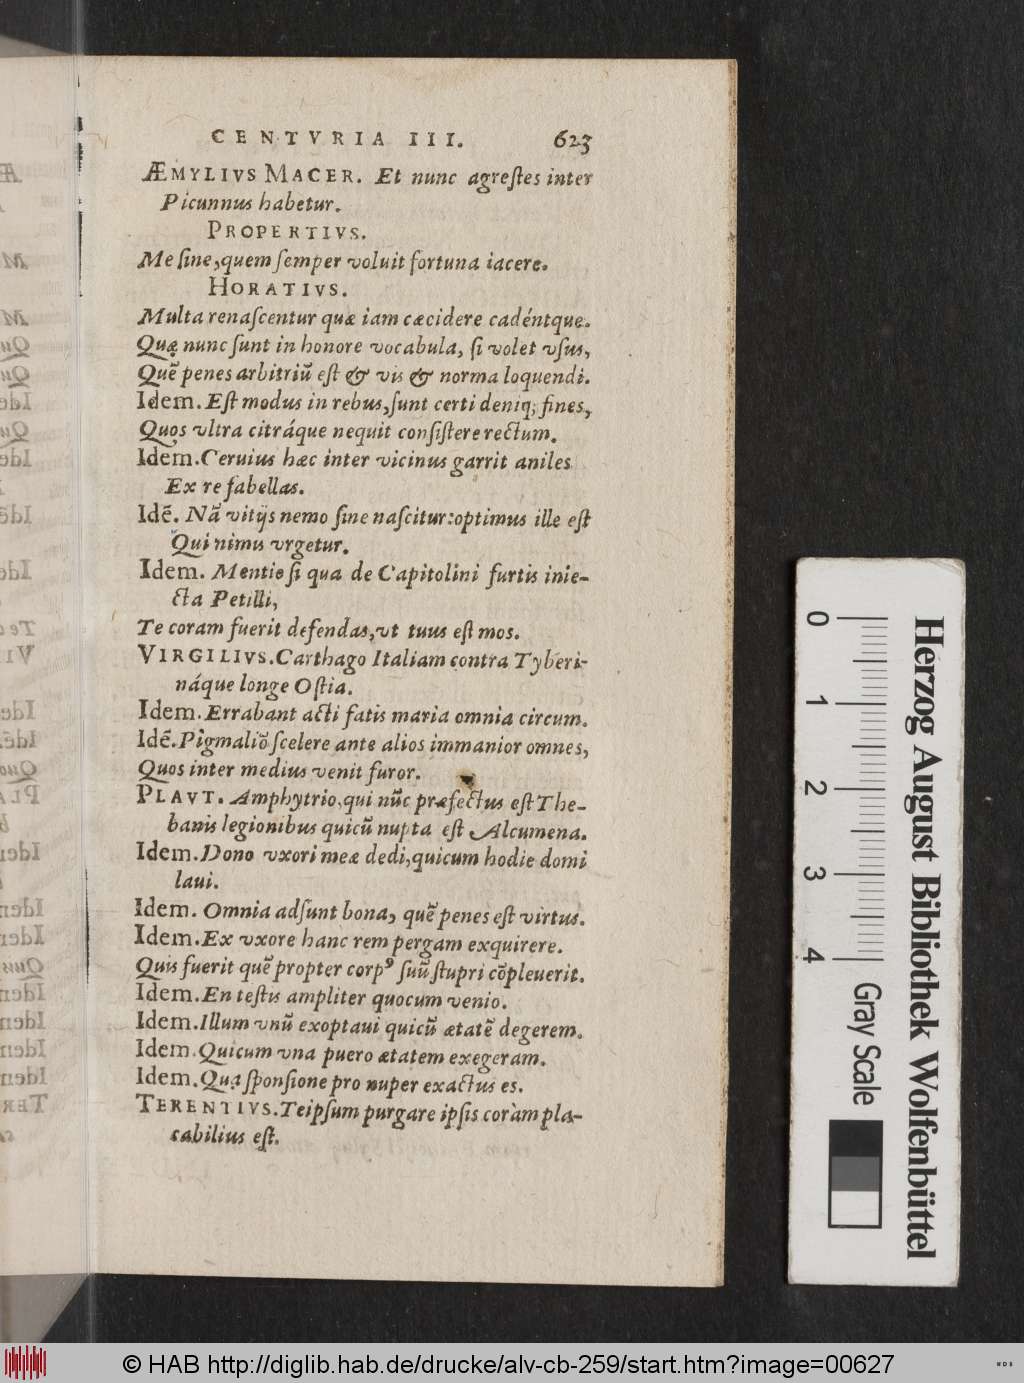 CENTVRIA III. 623
ÆMYLIVS MACER. Et nunc agreſtes inter
Picunnus habetur.
PROPERTIVS.
Me ſine, quem ſemper voluit fortuna iacere.
HORATIVS.
Multa renaſcentur quæ iam cæcidere cadéntque.
Quę nunc ſunt in honore vocabula, ſi volet vſus,
Quē penes arbitriū eſt & vis & norma loquendi.
Idem. Eſt modus in rebus, ſunt certi deniq; fines,
Quos vltra citráque nequit conſiſtere rectum.
Idem. Ceruius hæc inter vicinus garrit aniles
Ex re fabellas.
Idē. Nā vitijs nemo ſine naſcitur: optimus ille eſt
Qui nimus vrgetur.
Idem. Mentio ſi qua de Capitolini furtis inie-
cta Petilli,
Te coram fuerit defendas, vt tuus eſt mos.
VIRGILIVS. Carthago Italiam contra Tyberi-
náque longe Oſtia.
Idem. Errabant acti fatis maria omnia circum.
Idē. Pigmaliō ſcelere ante alios immanior omnes,
Quos inter medius venit furor.
PLAVT. Amphytrio, qui nūc præfectus eſt The-
banis legionibus quicū nupta eſt Alcumena.
Idem. Dono vxori meæ dedi, quicum hodie domi
laui.
Idem. Omnia adſunt bona, quē penes eſt virtus.
Idem. Ex vxore hanc rem pergam exquirere.
Quis fuerit quē propter corpꝰ ſuū ſtupri cōpleuerit.
Idem. En teſtis ampliter quocum venio.
Idem. Illum vnū exoptaui quicū ætatē degerem.
Idem. Quicum vna puero ætatem exegeram.
Idem. Qua ſponſione pro nuper exactus es.
TERENTIVS. Teipſum purgare ipſis coràm pla-
cabilius eſt.
0 1 2 3 4 Gray Scale
Herzog August Bibliothek Wolfenbüttel
© HAB http://diglib.hab.de/drucke/alv-cb-259/start.htm?image=00627